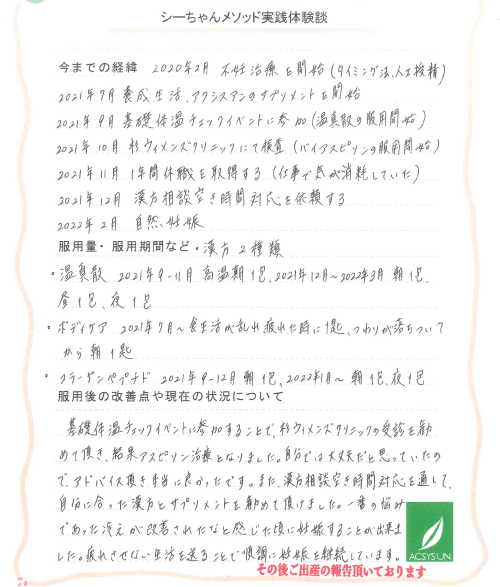 シーちゃんメソッド実践体験談
今までの経緯 2020年2月 不妊治療を開始(タイミング法、人工授精)
2021年7月 養成生活、アクシスアンのサプリメントを開始
2021年9月 基礎体温チェックイベントに参加(温真散の服用開始)
2021年10月 杉ウィメンズクリニックにて検査(バイアスピリンの服用開始)
2021年11月 1年間休職を取得する(仕事で気が消耗していた)
2021年12月 漢方相談空き時間対応を依頼する
2022年2月 自然妊娠
服用量・服用期間など・漢方2種類
・温真散 2021年9-11月 高温期1包、2021年12月〜2022年3月 朝1包、
昼1包、夜1包
・ボディケア 2021年7月〜食生活が乱れ疲れた時に1匙、つわりが落ちついて
から朝1匙
・コラーゲンペプチド 2021年9-12月 朝1包、2022年1月〜 朝1包、夜1包
服用後の改善点や現在の状況について
基礎体温チェックイベントに参加することで、杉ウィメンズクリニックの受診を勧
めて頂き、結果アスピリン治療となりました。自分では大丈夫だと思っていたの
で、アドバイス頂き本当に良かったです。また、漢方相談空き時間対応を通して、
自分に合った漢方とサプリメントを勧めて頂けました。一番の悩み
であった冷えが改善されたなと感じた頃に妊娠することが出来ま
した。疲れさせない生活を送ることで順調に妊娠を継続しています。
ACSYSUN
その後ご出産の報告頂いております